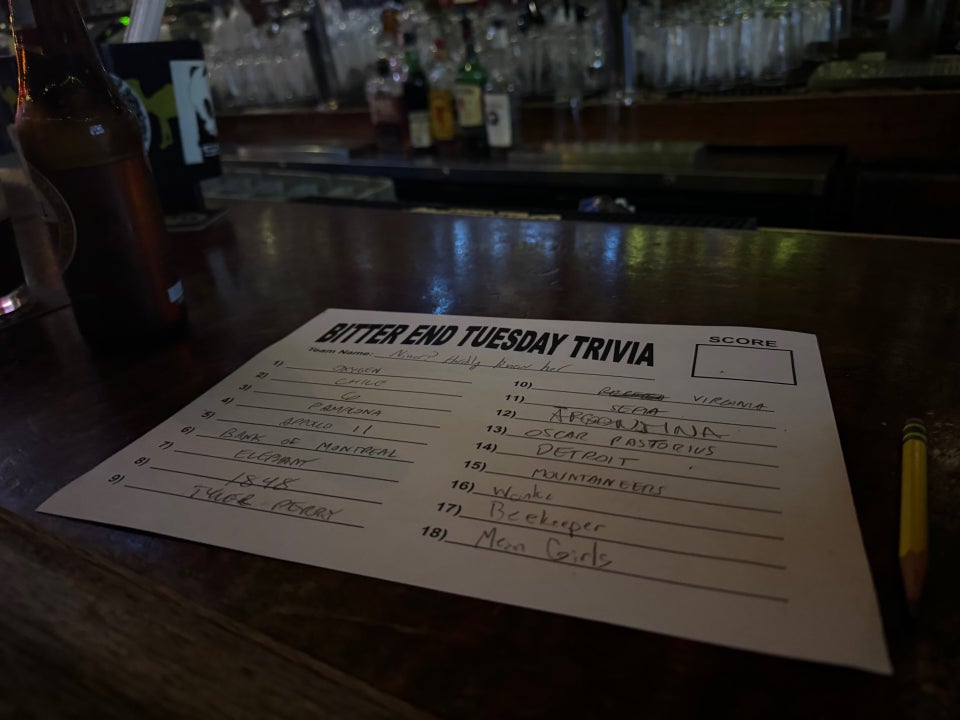 BITTER END TUESDAY TRIVIA
SCORE
Team Name: Niner? Hardly know her
1) OXYGEN
2) CHILE
3) 6
4) PAMPLONA
5) APPOLO 11
6) BANK OF MONTREAL
7) ELEPHANT
8) 1848
9) TYLER PERRY
10) VIRGINIA
11) SEPIA
12) ARGENTINA
13) OSCAR PASTORIUS
14) DETROIT
15) MOUNTAINEERS
16) Wonka
17) Beekeeper
18) Mean Girls